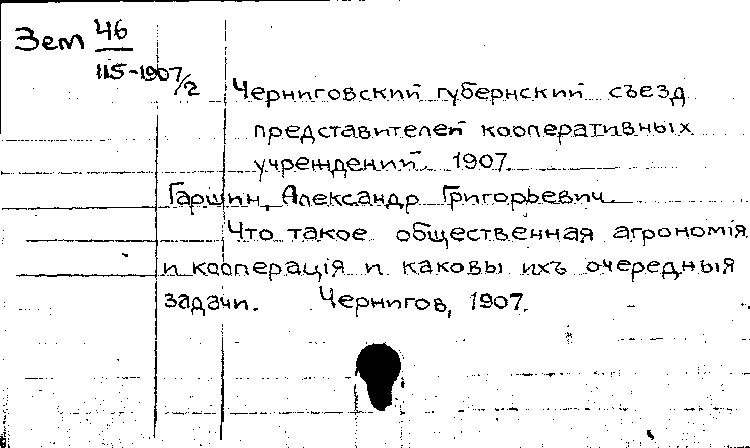 Зем 46
115-1907/2
Черниговский губернский съезд
представителей кооперативных
учреждений. 1907
Гаршин, Александр Григорьевич.
Что такое общественная агрономія
и кооперація и каковы ихъ очередныя
задачи. Чернигов, 1907.